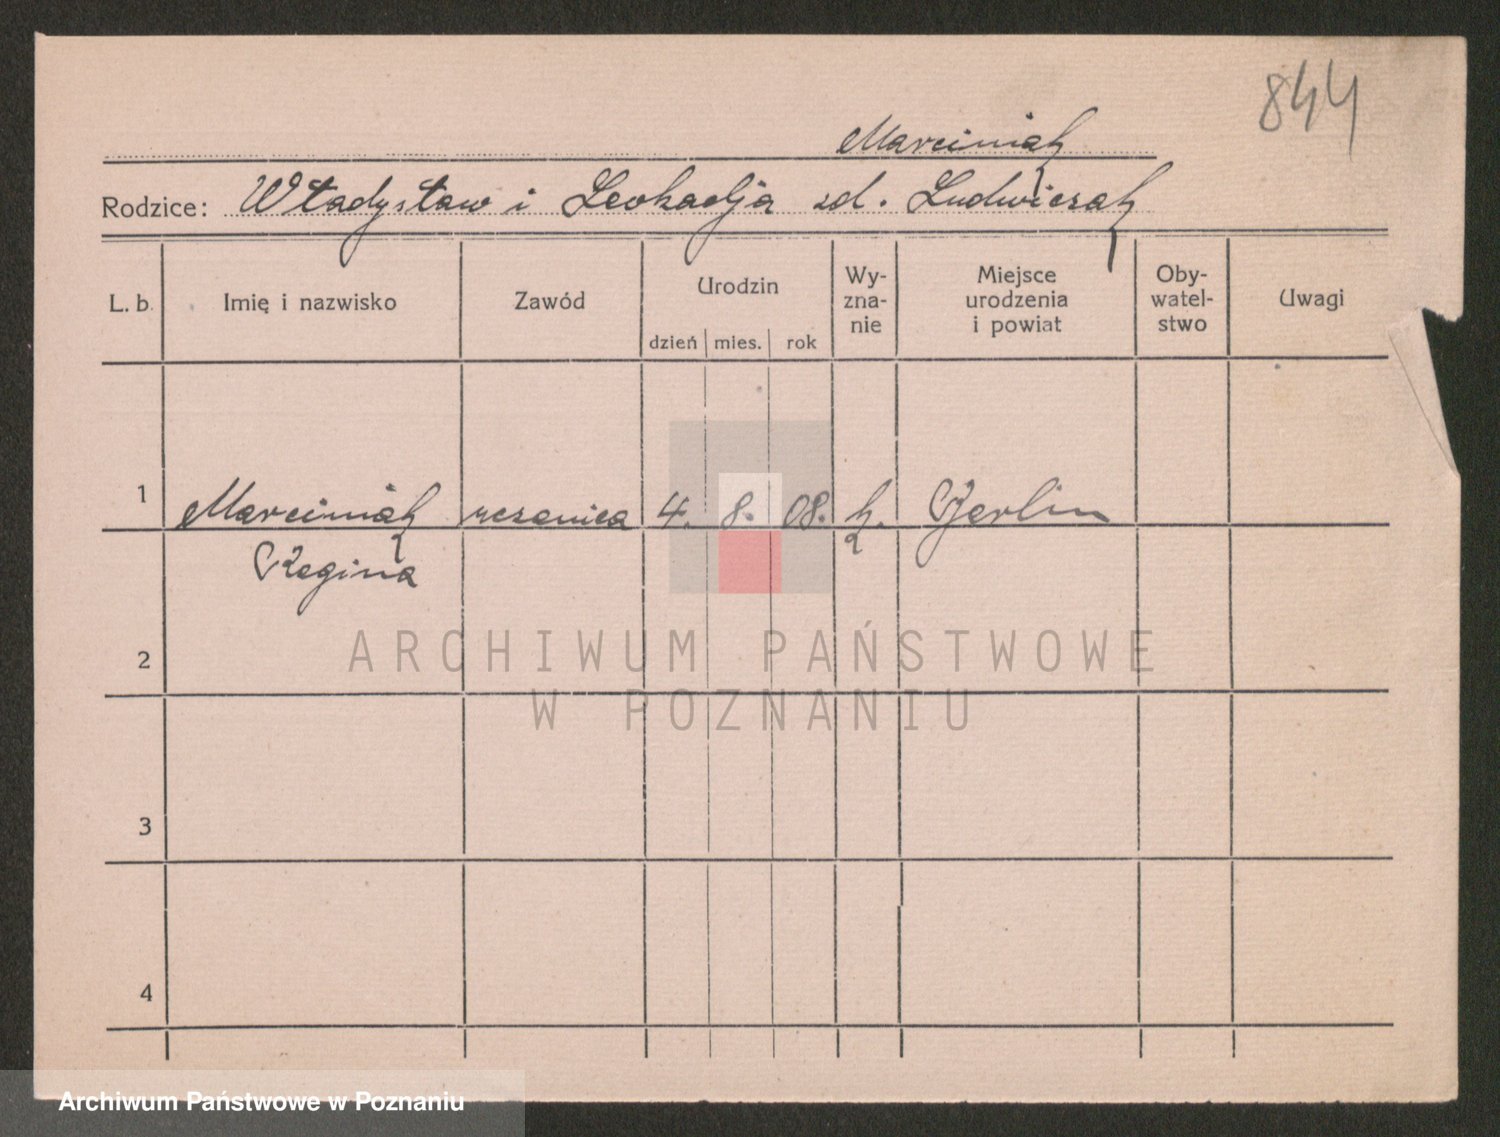 844
Marciniak
Rodzice: Władysław i Leokadja zd. Ludwiczak
L. b. Imię i nazwisko Zawód Urodzin dzień mies. rok Wy-zna-nie Miejsce urodzenia i powiat Oby-watel-stwo Uwagi
1 Marciniak uczenica 4. 8. 08. k. Berlin
Regina
2
ARCHIWUM PAŃSTWOWE
W POZNANIU
3
4
Archiwum Państwowe w Poznaniu